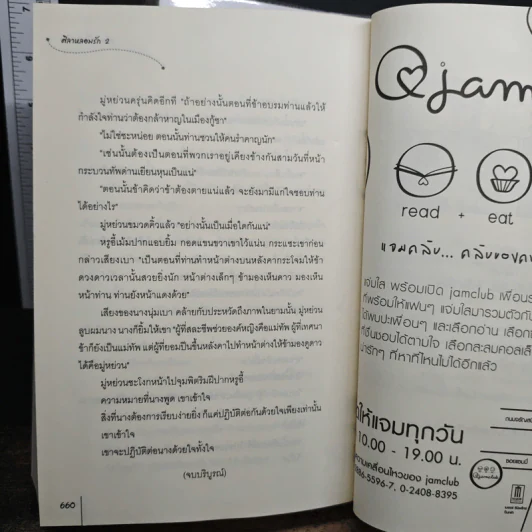 ศิลาหลอมรัก ๖
มู่หย่วนครุ่นคิดอีกที "ถ้าอย่างนั้นตอนที่ข้าอบรมท่านแล้วให้
กำลังใจท่านว่าต้องกล้าหาญในเมืองกู้ซา"
"ไม่ใช่ซะหน่อย ตอนนั้นท่านชวนให้คนรำคาญนัก"
"เช่นนั้นต้องเป็นตอนที่พวกเราอยู่เคียงข้างกันสามวันที่หน้า
กระบวนทัพด่านเยียนหุนเป็นแน่"
"ตอนนั้นข้าคิดว่าข้าต้องตายแน่แล้ว จะยังมามีแก่ใจชอบท่าน
ได้อย่างไร"
มู่หย่วนขมวดคิ้วแล้ว "อย่างนั้นเป็นเมื่อใดกันแน่"
หรูอี้เม้มปากแอบยิ้ม กอดแขนขวาเขาไว้แน่น กระแซะเขาก่อน
กล่าวเสียงเบา "เป็นตอนที่ท่านทำหน้าด่างบนหลังคากระโจมให้ข้า
ดวงดาวเวลานั้นสวยยิ่งนัก หน้าด่างเล็กๆ ข้ามองเห็นดาว มองเห็น
หน้าท่าน ท่านยังหน้าแดงด้วย"
เสียงของนางนุ่มเบา คล้ายกับประหวัดถึงภาพในยามนั้น มู่หย่วน
ลูบผมนาง นางก็ยิ้มให้เขา "ผู้ที่สละชีพช่วยองค์หญิงคือแม่ทัพ ผู้ที่เทศนา
ข้าก็ยังเป็นแม่ทัพ แต่ผู้ที่ยอมปีนขึ้นหลังคาไปทำหน้าต่างให้ข้ามองดูดาว
ได้คือมู่หย่วน"
มู่หย่วนชะโงกหน้าไปจุมพิตริมฝีปากหรูอี้
ความหมายที่นางพูด เขาเข้าใจ
สิ่งที่นางต้องการเรียบง่ายยิ่ง ก็แค่ปฏิบัติต่อกันด้วยใจเพียงเท่านั้น
เขาเข้าใจ
เขาจะปฏิบัติต่อนางด้วยใจทั้งใจ
(จบบริบูรณ์)
660
jam
read + eat
แจมคลับ... คลับของคน
แจ่มใส พร้อมเปิด jamclub เพื่อนรั
ที่พร้อมให้แฟนๆ แจ่มใสมารวมตัวกัน
ได้พบปะเพื่อนๆ และเลือกอ่าน เลือก
ที่ชื่นชอบได้ตามใจ เลือกสะสมคอลเล
น่ารักๆ ที่หาที่ไหนไม่ได้อีกแล้ว
ให้แจมทุกวัน
10.00 - 19.00 น.
ความเคลื่อนไหวของ jamclub
886-5596-7, 0-2408-8395
jamclub